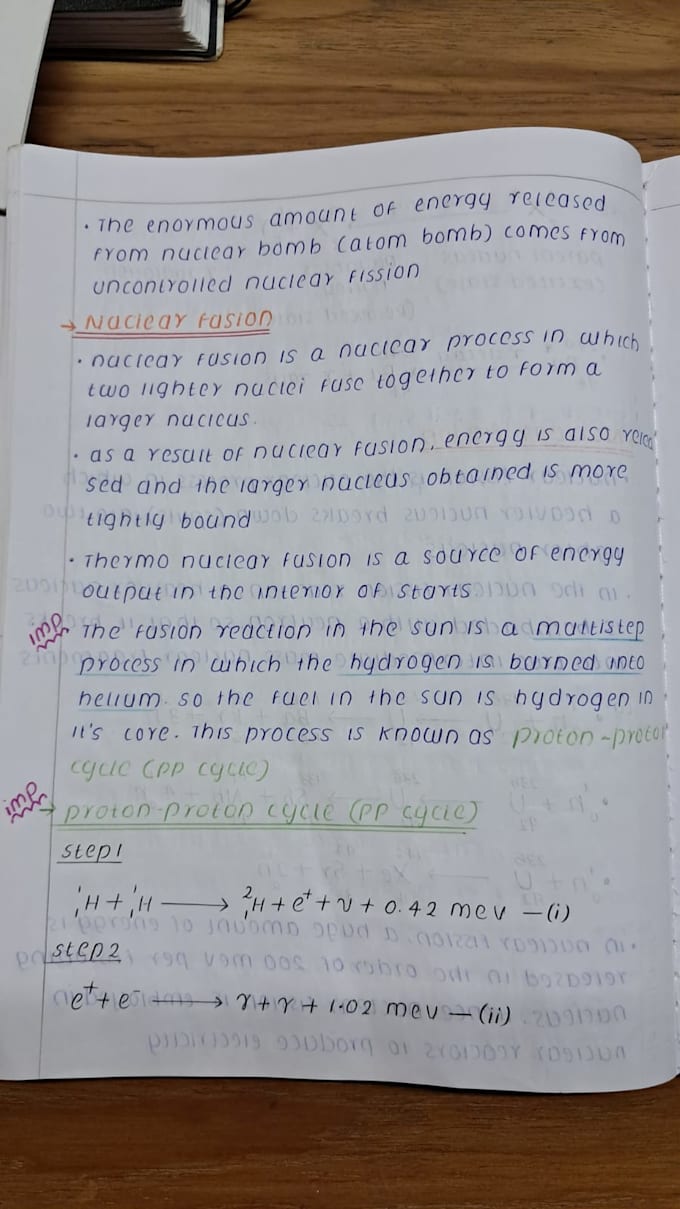 • The enormous amount of energy released
from nuclear bomb (atom bomb) comes from
uncontrolled nuclear fission
→ Nuclear fusion
• nuclear fusion is a nuclear process in which
two lighter nuclei fuse together to form a
larger nucleus.
• as a result of nuclear fusion, energy is also relea
sed and the larger nucleus obtained is more
tightly bound
• Thermo nuclear fusion is a source of energy
output in the interior of starts.
imp The fusion reaction in the sun is a multistep
process in which the hydrogen is burned into
helium. so the fuel in the sun is hydrogen in
it's core. This process is known as proton-proton
cycle (pp cycle)
imp → proton-proton cycle (pp cycle)
step1
¹₁H + ¹₁H ⟶ ²₁H + e⁺ + ν + 0.42 mev — (i)
step2
e⁺ + e⁻ ⟶ γ + γ + 1.02 mev — (ii)